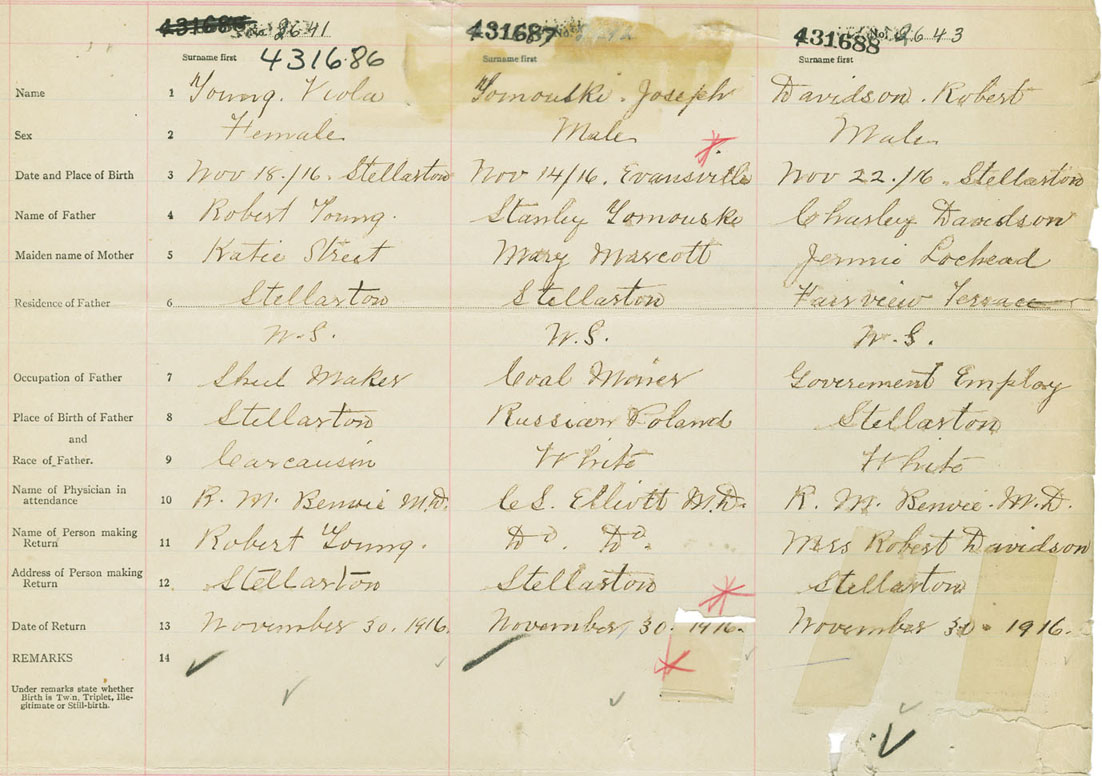 431685 No. 2641 431687 No. 431688 No. 2643
Surname first 431686 Surname first Surname first
Name 1 Young. Viola Tomouski. Joseph Davidson. Robert
Sex 2 Female Male Male
Date and Place of Birth 3 Nov 18./16. Stellarton Nov 14/16. Evansville Nov 22./16. Stellarton
Name of Father 4 Robert Young. Stanley Tomouski Charley Davidson
Maiden name of Mother 5 Katie Street Mary Marcott Jennie Lochead
Residence of Father 6 Stellarton Stellarton Fairview Terrace
N.S. N.S. N.S.
Occupation of Father 7 Maker Coal Moner Goverement Employ
Place of Birth of Father 8 Stellarton Russian Poland Stellarton
and
Race of Father. 9 Carcausin White White
Name of Physician in
attendance 10 R. M. Benvie M.D. C.S. Elliott M.D. R. M. Benvie. M.D.
Name of Person making
Return 11 Robert Young. Do. Do. Mrs Robert Davidson
Address of Person making
Return 12 Stellarton Stellarton Stellarton
Date of Return 13 November 30. 1916. November 30. 1916. November 30. 1916.
REMARKS 14
Under remarks state whether
Birth is Twin, Triplet, Ille-
gitimate or Still-birth.